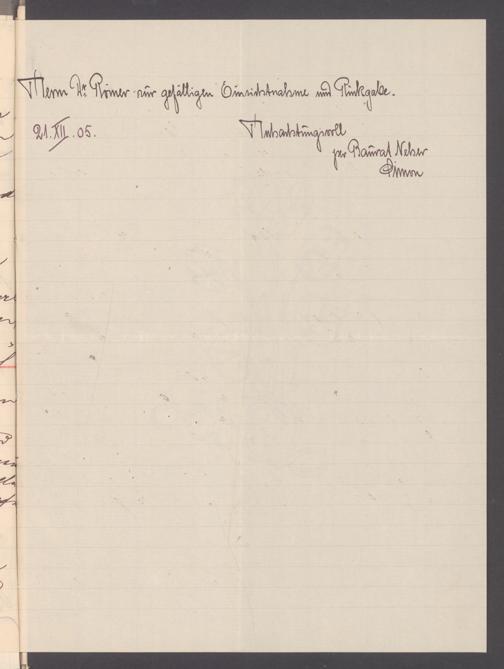 Herrn Dr. Römer zur gefälligen Einsichtnahme und Rückgabe.
21.XII.05.
Hochachtungsvoll
per Baurat Neher
Simon